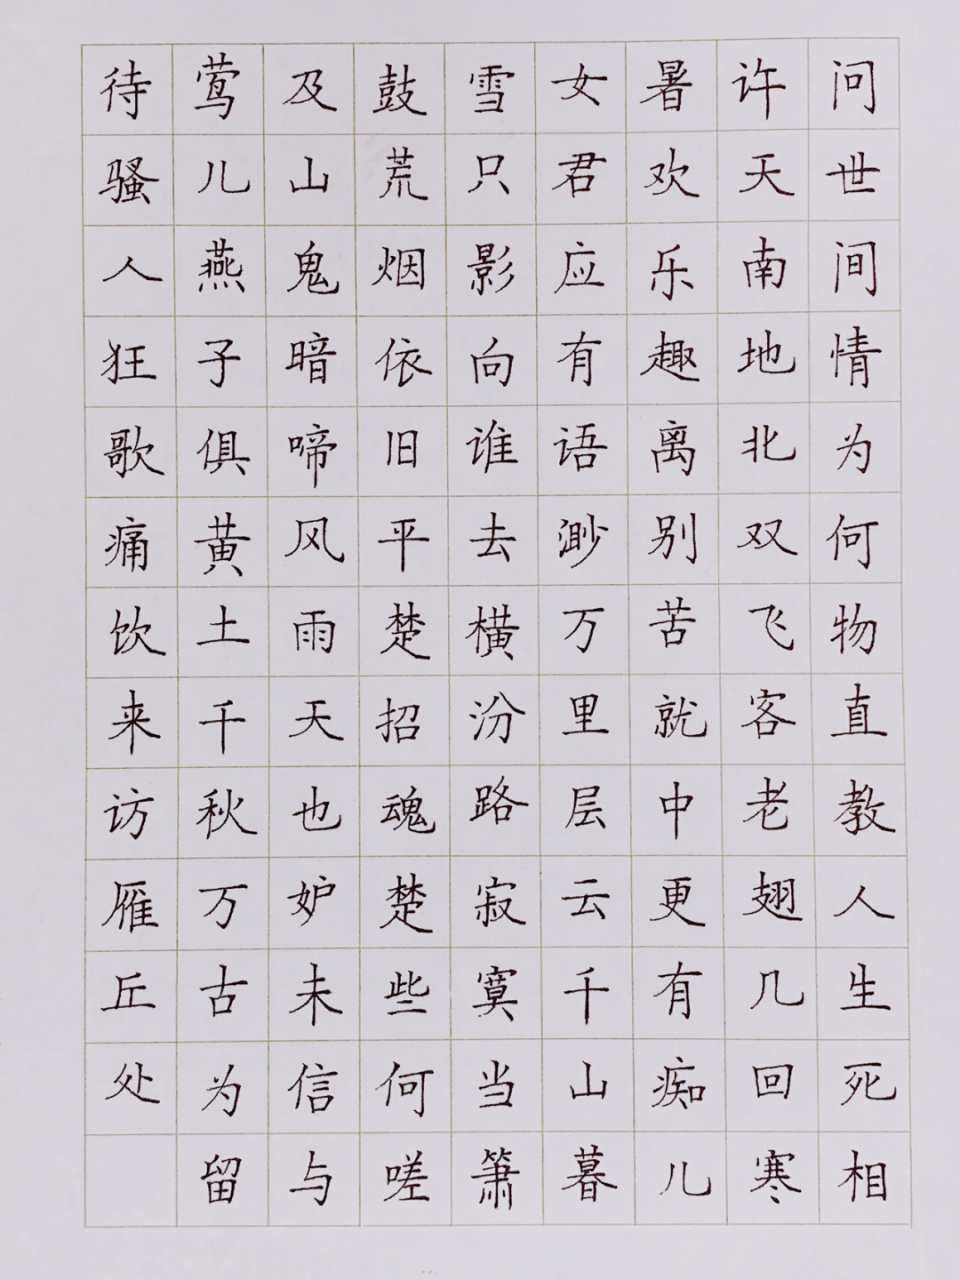 问世间情为何物直教人生死相
许天南地北双飞客老翅几回寒
暑欢乐趣离别苦就中更有痴儿
女君应有语渺万里层云千山暮
雪只影向谁去横汾路寂寞当箫
鼓荒烟依旧平楚招魂楚些何嗟
及山鬼暗啼风雨天也妒未信与
莺儿燕子俱黄土千秋万古为留
待骚人狂歌痛饮来访雁丘处